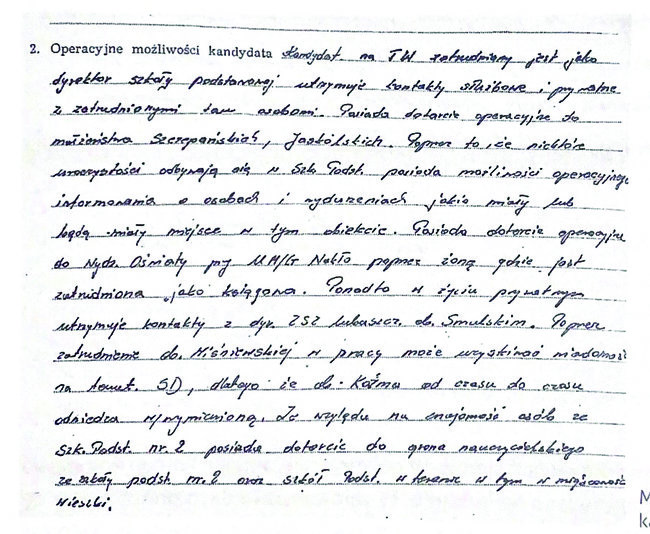 2. Operacyjne możliwości kandydata Kandydat na TW zatrudniony jest jako
dyrektor szkoły podstawowej utrzymuje kontakty służbowe i prywatne
z zatrudnionymi tam osobami. Posiada dotarcie operacyjne do
małżeństwa Szczepańskich, Jaskólskich. Poprzez to, że niektóre
uroczystości odbywają się w Szk. Podst. posiada możliwości operacyjnego
informowania o osobach i wydarzeniach jakie miały lub
będą miały miejsce w tym obiekcie. Posiada dotarcie operacyjne
do Wydz. Oświaty przy UM/G Nakło poprzez żonę gdzie jest
zatrudniona jako księgowa. Ponadto w życiu prywatnym
utrzymuje kontakty z dyr. ZSZ Lubaszcz ob. Smulskim. Poprzez
zatrudnienie ob. Wiśniewskiej w pracy może uzyskiwać wiadomości
na temat SD, dlatego że ob. Koźma od czasu do czasu
odwiedza w/wymienioną. Ze względu na znajomość osób ze
Szk. Podst. nr. 2 posiada dotarcie do grona nauczycielskiego
ze szkoły podst. nr. 2 oraz szkół Podst. w terenie w tym w miejscowości
M
k